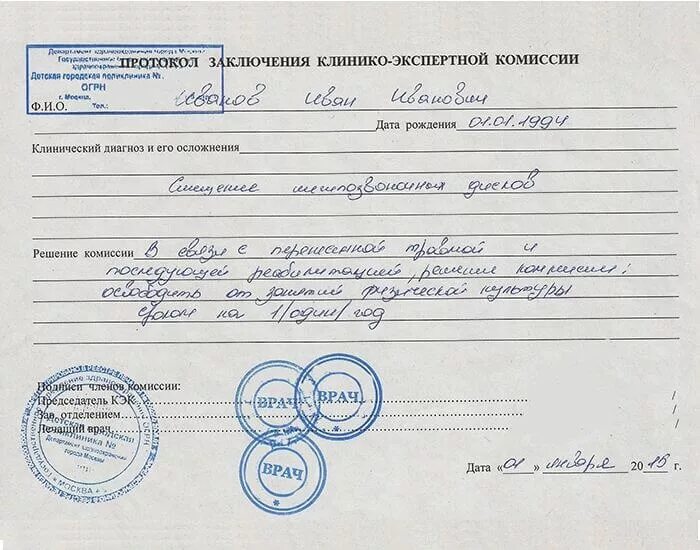 Департамент здравоохранения города Москвы
Государственное
здравоохранения
Детская городская поликлиника №
ОГРН
г. Москва, Тел.:
ПРОТОКОЛ ЗАКЛЮЧЕНИЯ КЛИНИКО-ЭКСПЕРТНОЙ КОМИССИИ
Ф.И.О. Иванов Иван Иванович
Дата рождения 01.01.1994
Клинический диагноз и его осложнения
Смещение межпозвоночных дисков
Решение комиссии В связи с перенесенной травмой и
последующей реабилитацией, решение комиссии:
освободить от занятий физической культуры
сроком на 1/один/ год
Подписи членов комиссии:
Председатель КЭК
Зав. отделением
Лечащий врач
ВРАЧ
ВРАЧ
ВРАЧ
Детская городская
поликлиника №
Департамент здравоохранения
города Москвы
МОСКВА
Дата «01» января 2015 г.